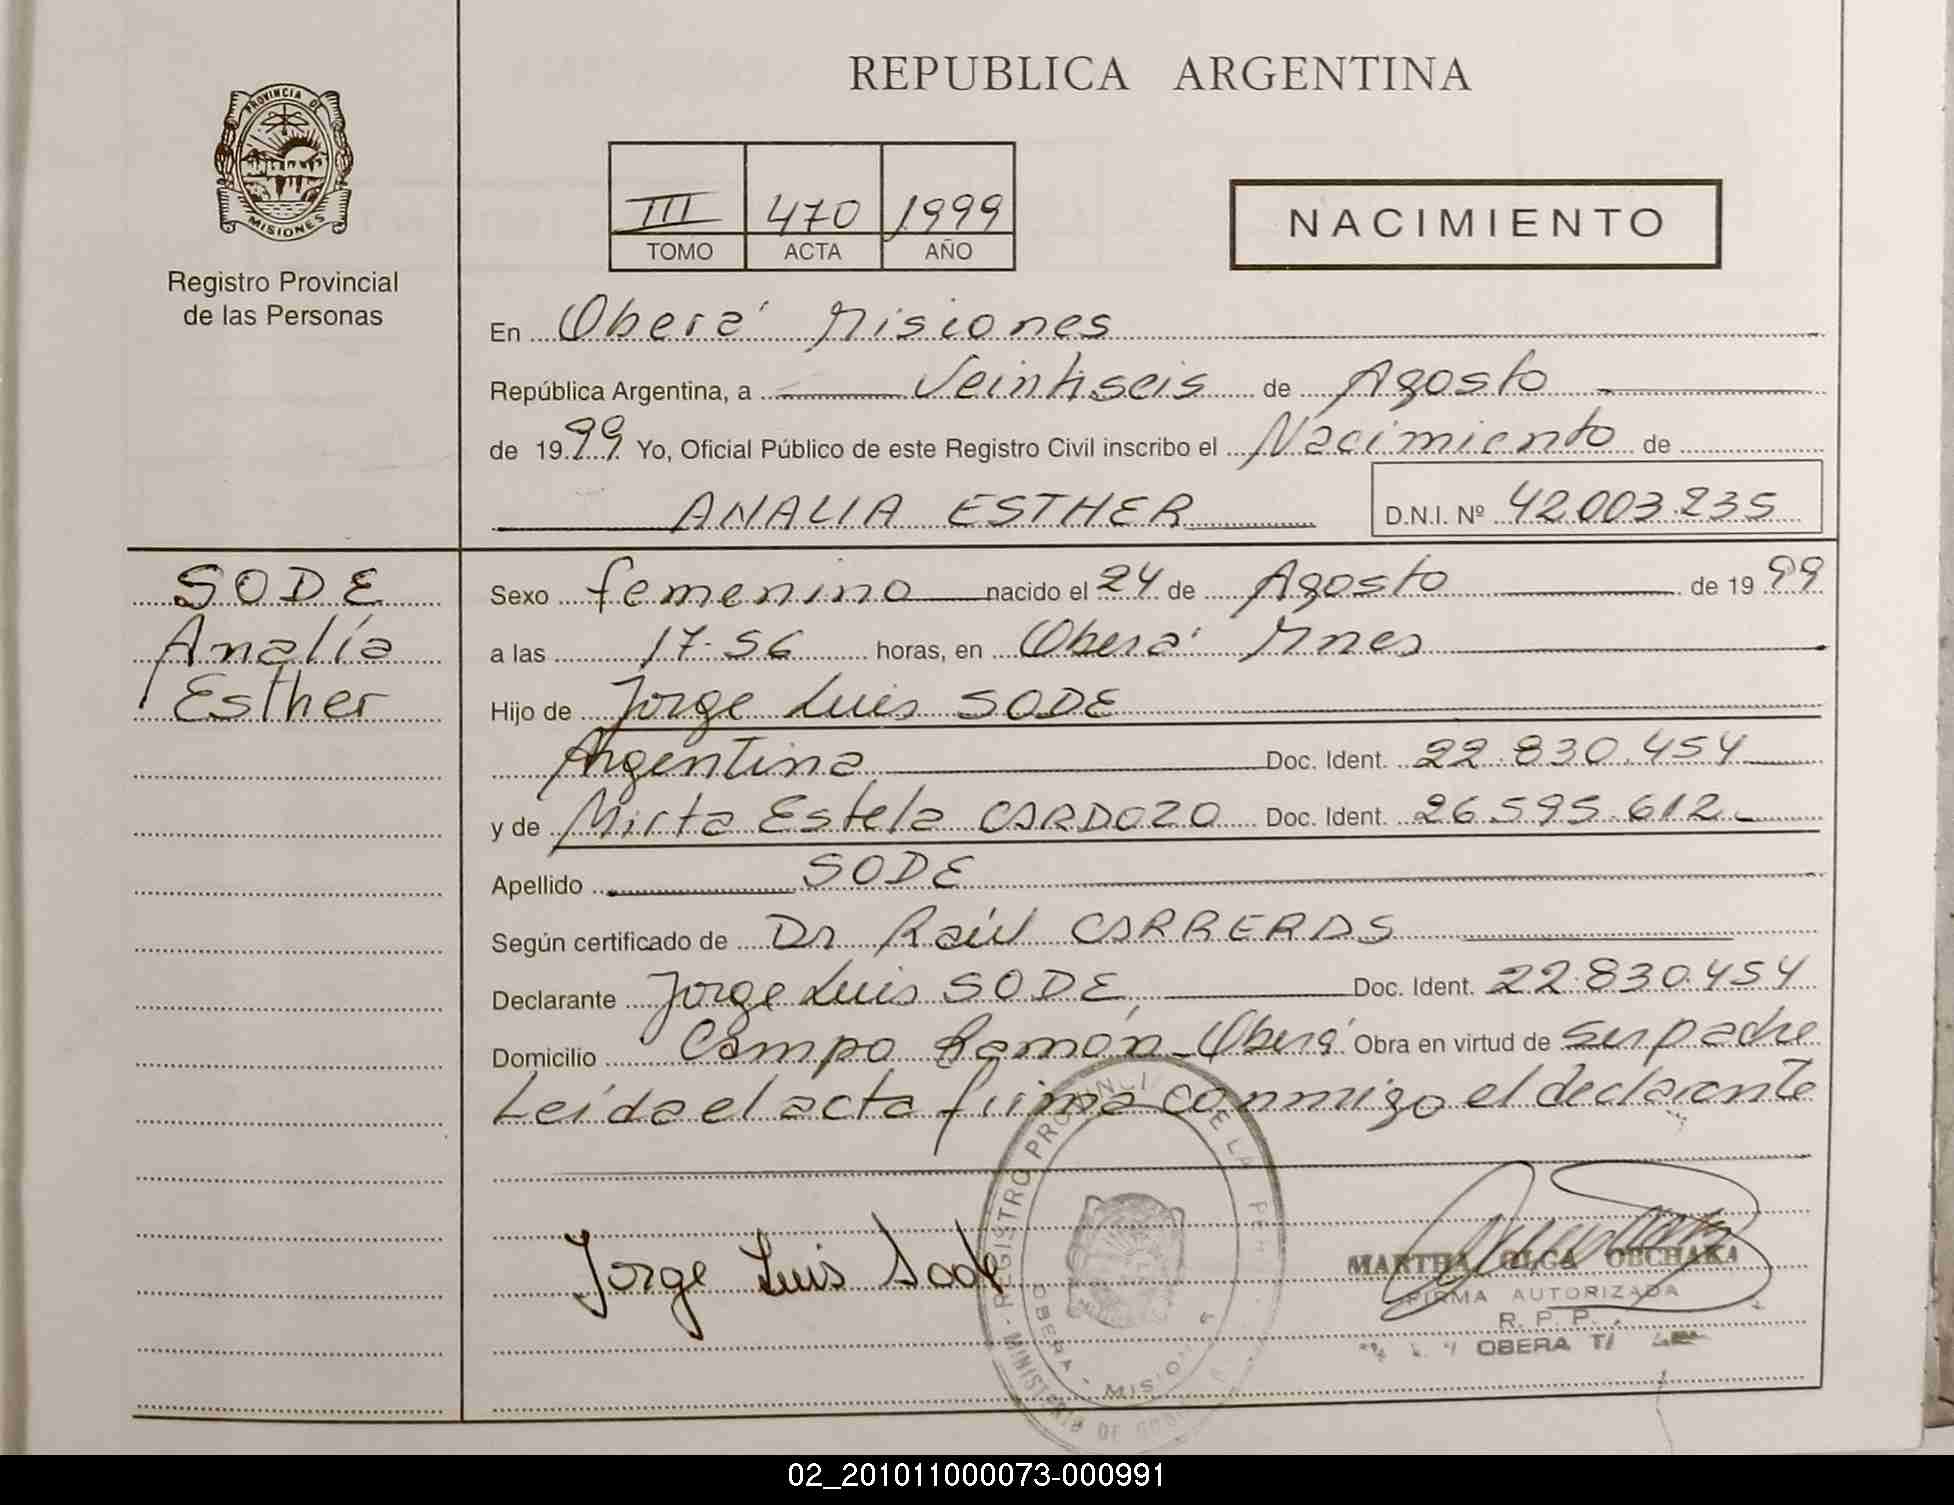 REPUBLICA ARGENTINA
PROVINCIA DE
MISIONES
Registro Provincial
de las Personas
III 470 1999
TOMO ACTA AÑO
NACIMIENTO
En Oberá Misiones
República Argentina, a Veintiseis de Agosto
de 1999 Yo, Oficial Público de este Registro Civil inscribo el Nacimiento de
ANALIA ESTHER D.N.I. Nº 42.003.235
SODE
Analía
Esther
Sexo femenino nacido el 24 de Agosto de 1999
a las 17.56 horas, en Oberá Mnes
Hijo de Jorge Luis SODE
Argentina Doc. Ident. 22.830.454
y de Mirta Estela CARDOZO Doc. Ident. 26.595.612
Apellido SODE
Según certificado de Dr Raúl CARRERAS
Declarante Jorge Luis SODE Doc. Ident. 22.830.454
Domicilio Campo Ramón - Oberá Obra en virtud de ser padre
Leída el acta firma conmigo el declarante
Jorge Luis Sode
REGISTRO PROVINCIAL DE LAS PER
OBERA - MISIONES
MINISTERIO DE
MARTHA OLGA OBCHAKA
FIRMA AUTORIZADA
R. P. P.
OBERA
02_201011000073-000991